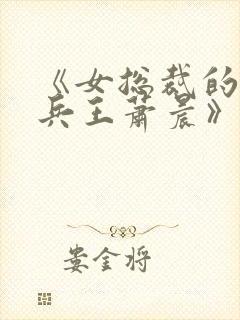 《女总裁的
兵王萧晨》
娄金将